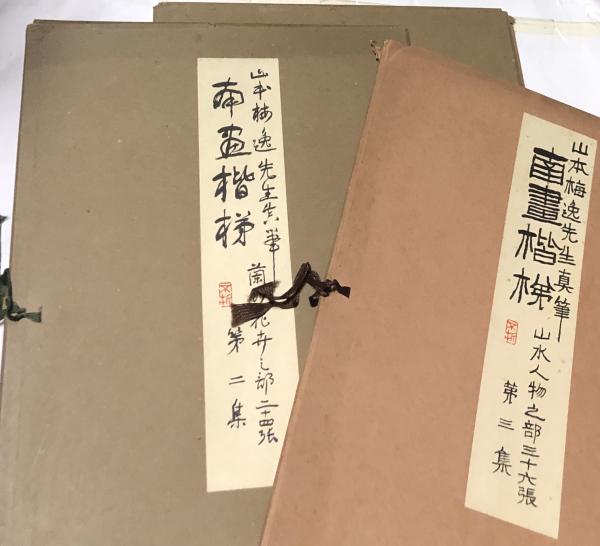 山本梅逸先生真筆
南画楷梯
蘭
花卉之部二十四張
第二集
山本梅逸先生真筆
南畫楷梯
山水人物之部三十六張
第三集